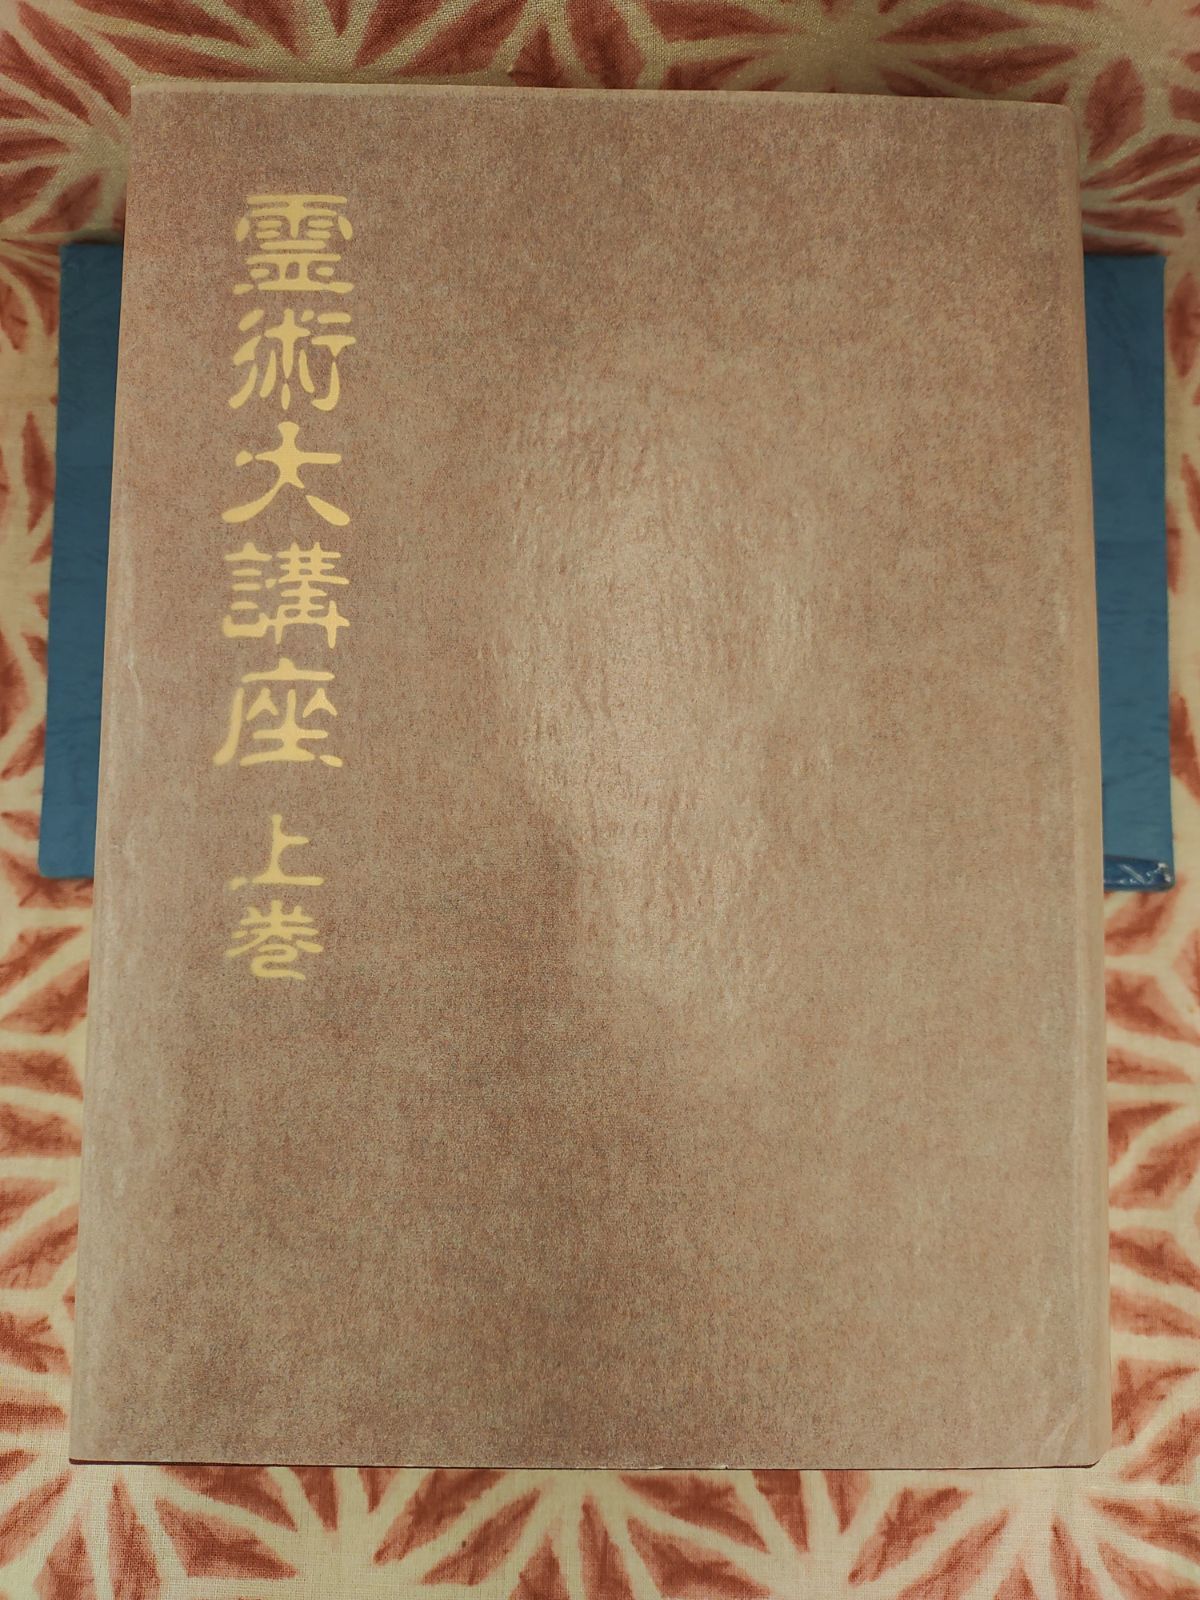 霊術大講座 上巻